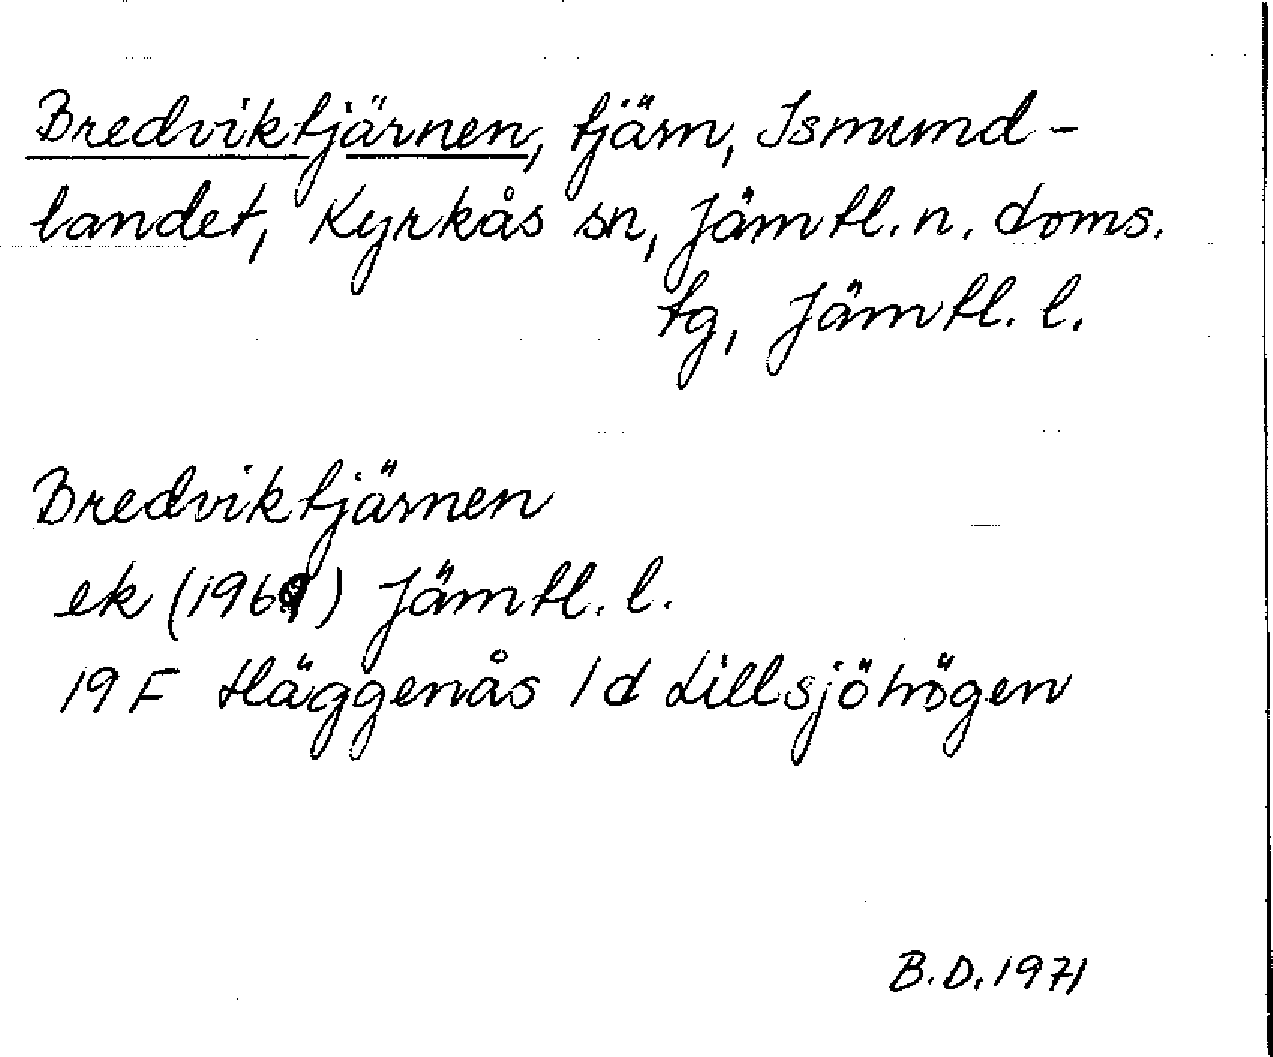 Bredviktjärnen, tjärn, Ismund-
landet, Kyrkås sn, Jämtl. n. doms.
tg, Jämtl. l.
Bredviktjärnen
ek (1969) Jämtl. l.
19 F Häggenås 1 d Lillsjöhögen
B.D. 1971